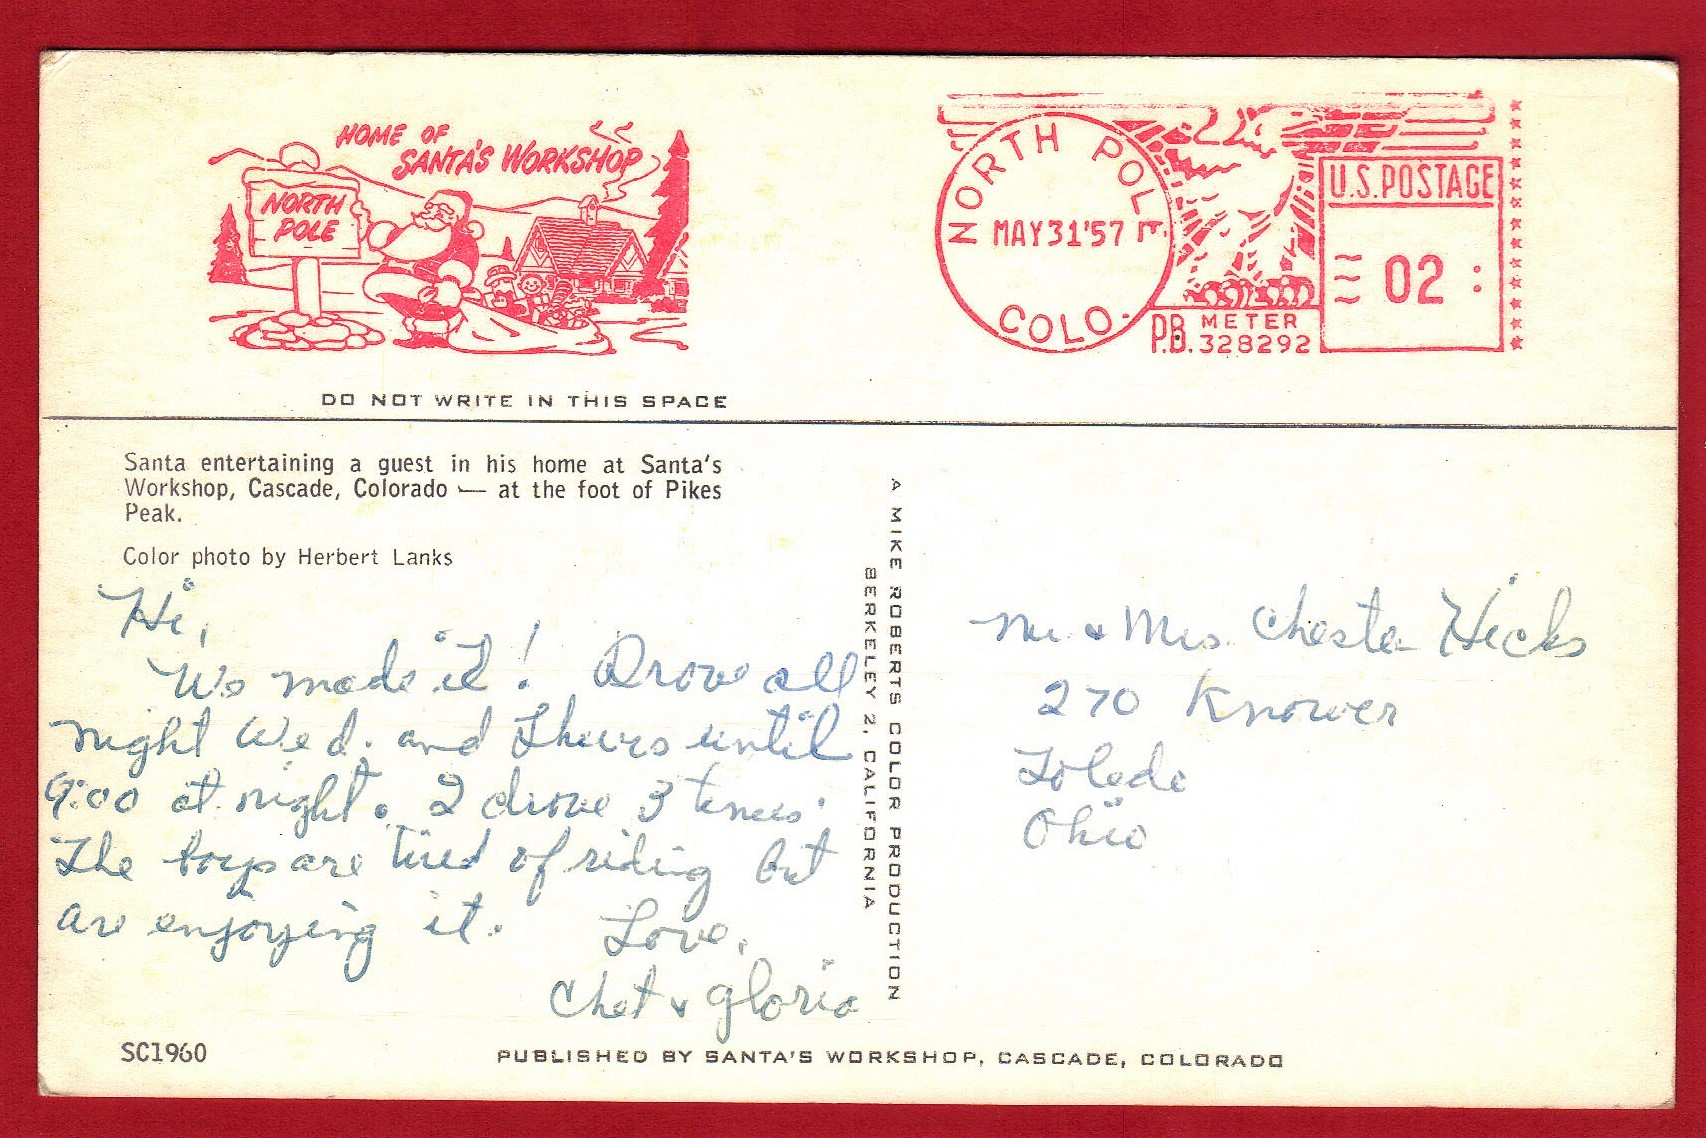 HOME OF
SANTA'S WORKSHOP
NORTH
POLE
NORTH POLE
MAY 31 '57
COLO.
P.B. METER
328292
U.S. POSTAGE
02
DO NOT WRITE IN THIS SPACE
Santa entertaining a guest in his home at Santa's
Workshop, Cascade, Colorado — at the foot of Pikes
Peak.
Color photo by Herbert Lanks
Hi,
We made it! Drove all
night Wed. and Thurs until
9:00 at night. I drove 3 times.
The boys are tired of riding but
are enjoying it. Love,
Chet & Gloria
SC1960
PUBLISHED BY SANTA'S WORKSHOP, CASCADE, COLORADO
A MIKE ROBERTS COLOR PRODUCTION
BERKELEY 2, CALIFORNIA
Mr & Mrs. Chester Hicks
270 Knower
Toledo
Ohio